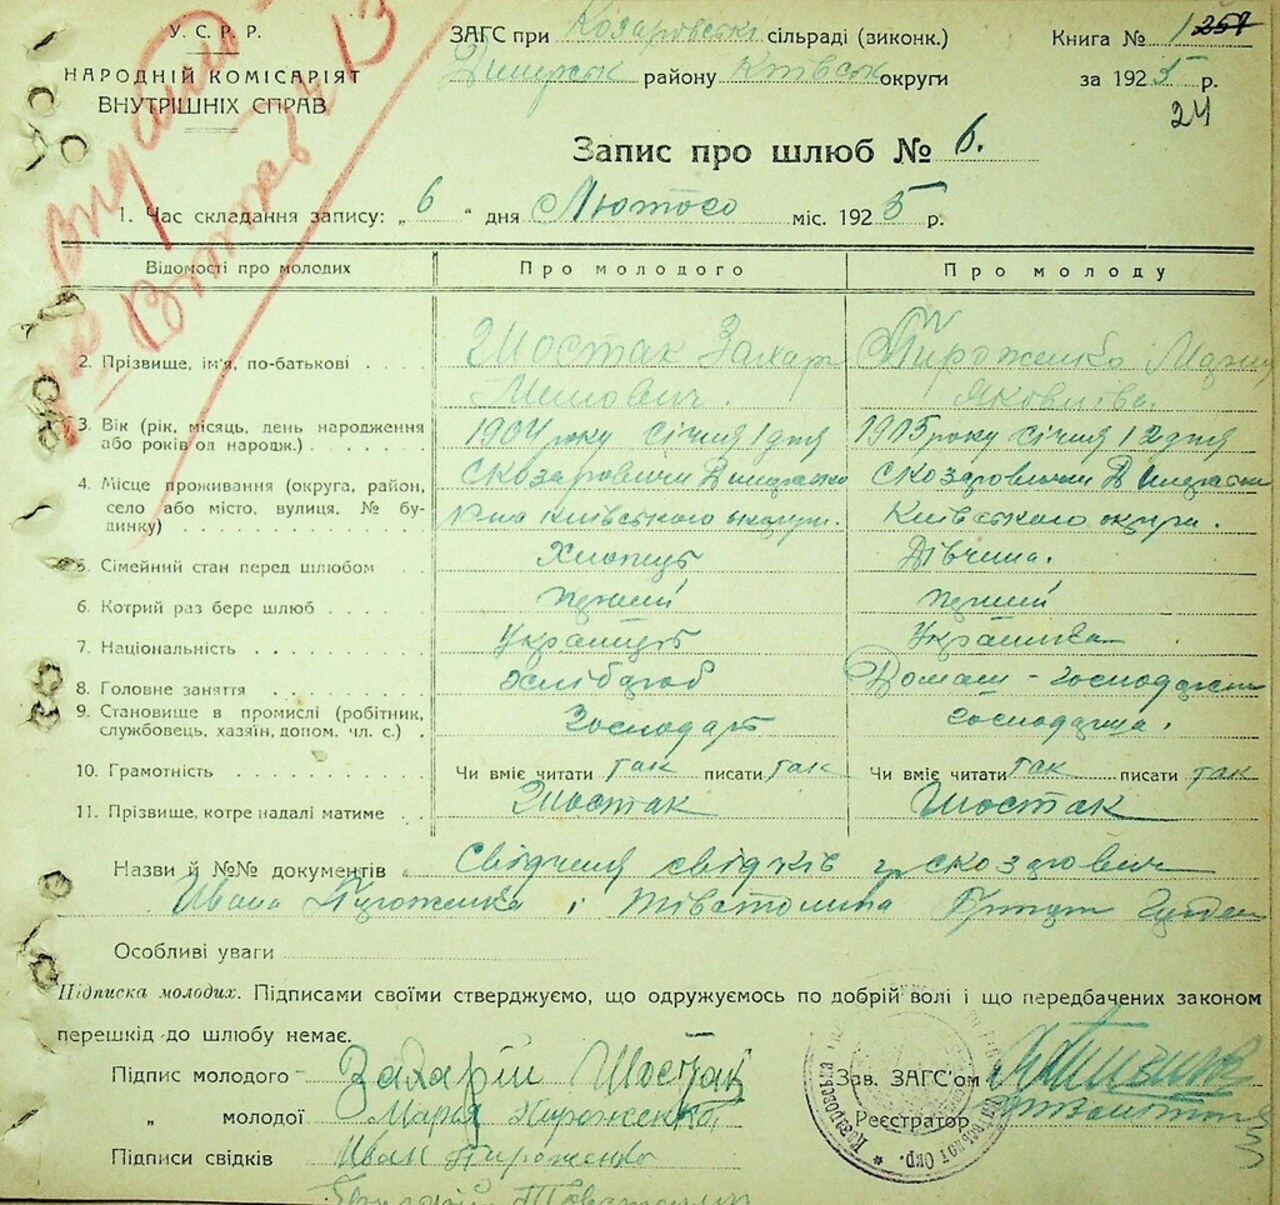 У.С.Р.Р.
НАРОДНІЙ КОМІСАРІЯТ
ВНУТРІШНІХ СПРАВ
ЗАГС при Козаровські сільраді (виконк.)
Димерськ району Київськ округи
Книга № 1 257
за 1925 р.
24
Запис про шлюб № 6.
1. Час складання запису: „ 6 “ дня Лютого міс. 1925 р.
Відомості про молодих Про молодого Про молоду
2. Прізвище, ім'я, по-батькові Шостак Захар Пироженко Мария
Яковлівна.
3. Вік (рік, місяць, день народження 1904 року січня 1 дня 1905 року січня 12 дня
або років од народж.)
4. Місце проживання (округа, район, с Козаровичи с Козаровичи
село або місто, вулиця, № бу- Київського округи. Київського округи.
динку)
5. Сімейний стан перед шлюбом Хлопець Дівчина.
6. Котрий раз бере шлюб перший перший
7. Національність Українець Українка
8. Головне заняття хлібороб Домаш-господарст
9. Становище в промислі (робітник, Господарь господарка.
службовець, хазяїн, допом. чл. с.)
10. Грамотність Чи вміє читати так писати так Чи вміє читати так писати так
11. Прізвище, котре надалі матиме Шостак Шостак
Назви й №№ документів Свідченя свідків гр с Козарович
Ивана Пироженка і
Особливі уваги
Підписка молодих. Підписами своїми стверджуємо, що одружуємось по добрій волі і що передбачених законом
перешкід до шлюбу немає.
Підпис молодого Захарій Шостак
„ молодої Мария Пироженко
Підписи свідків Иван Пироженко
Зав. ЗАГС'ом
Реєстратор